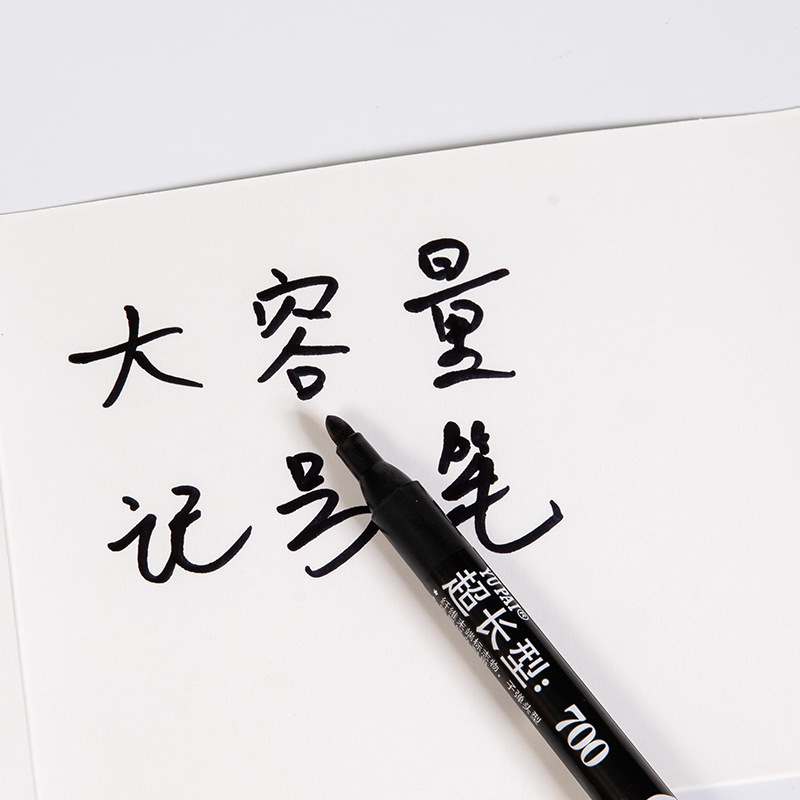 大容量
记号笔
YUPAI®
超长型：700